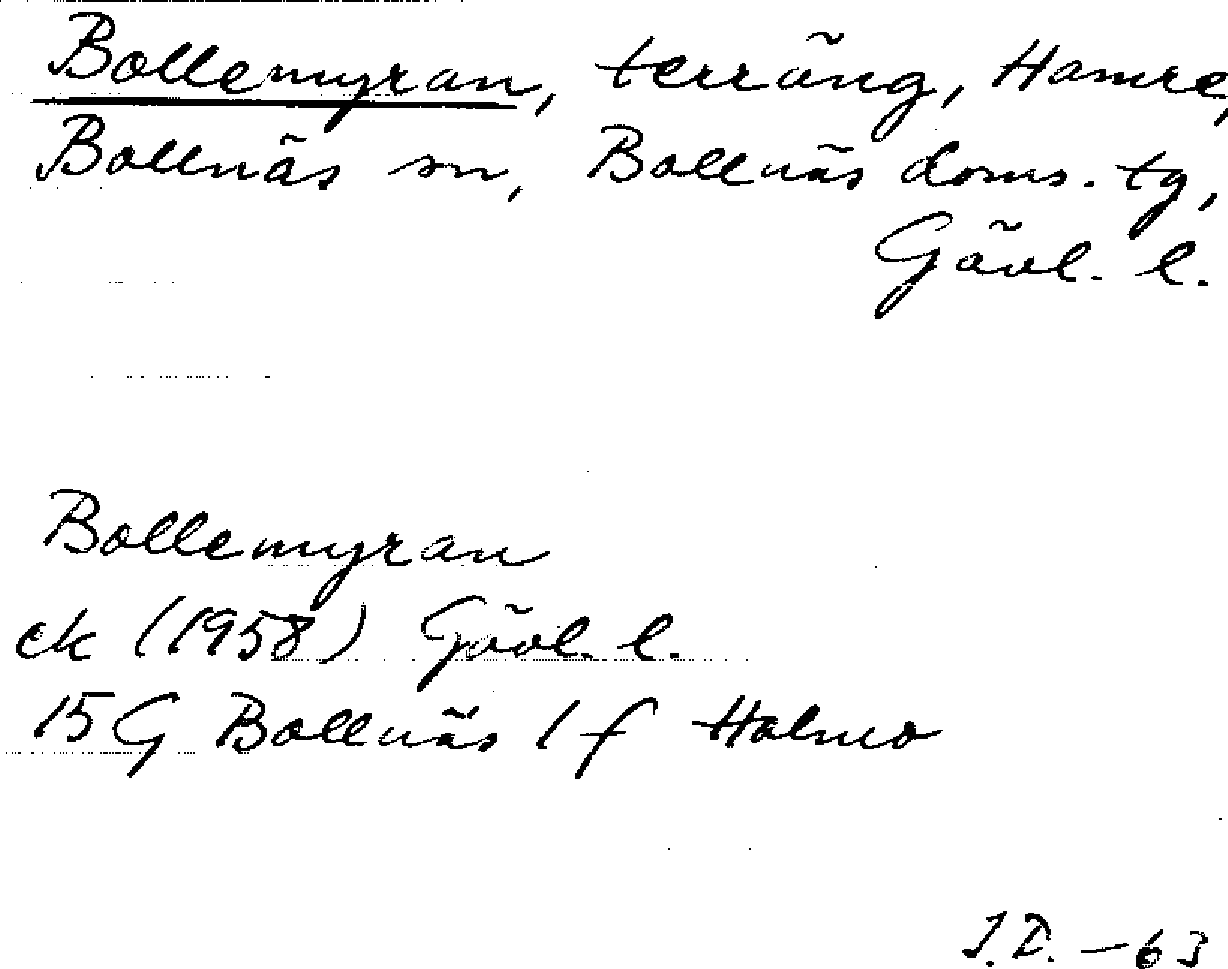 Bollemyran, terräng, Hamre,
Bollnäs sn, Bollnäs doms. tg,
Gävl. l.
Bollemyran
ek (1958) Gävl. l.
15 G Bollnäs 1 f Holmo
I.D. -63